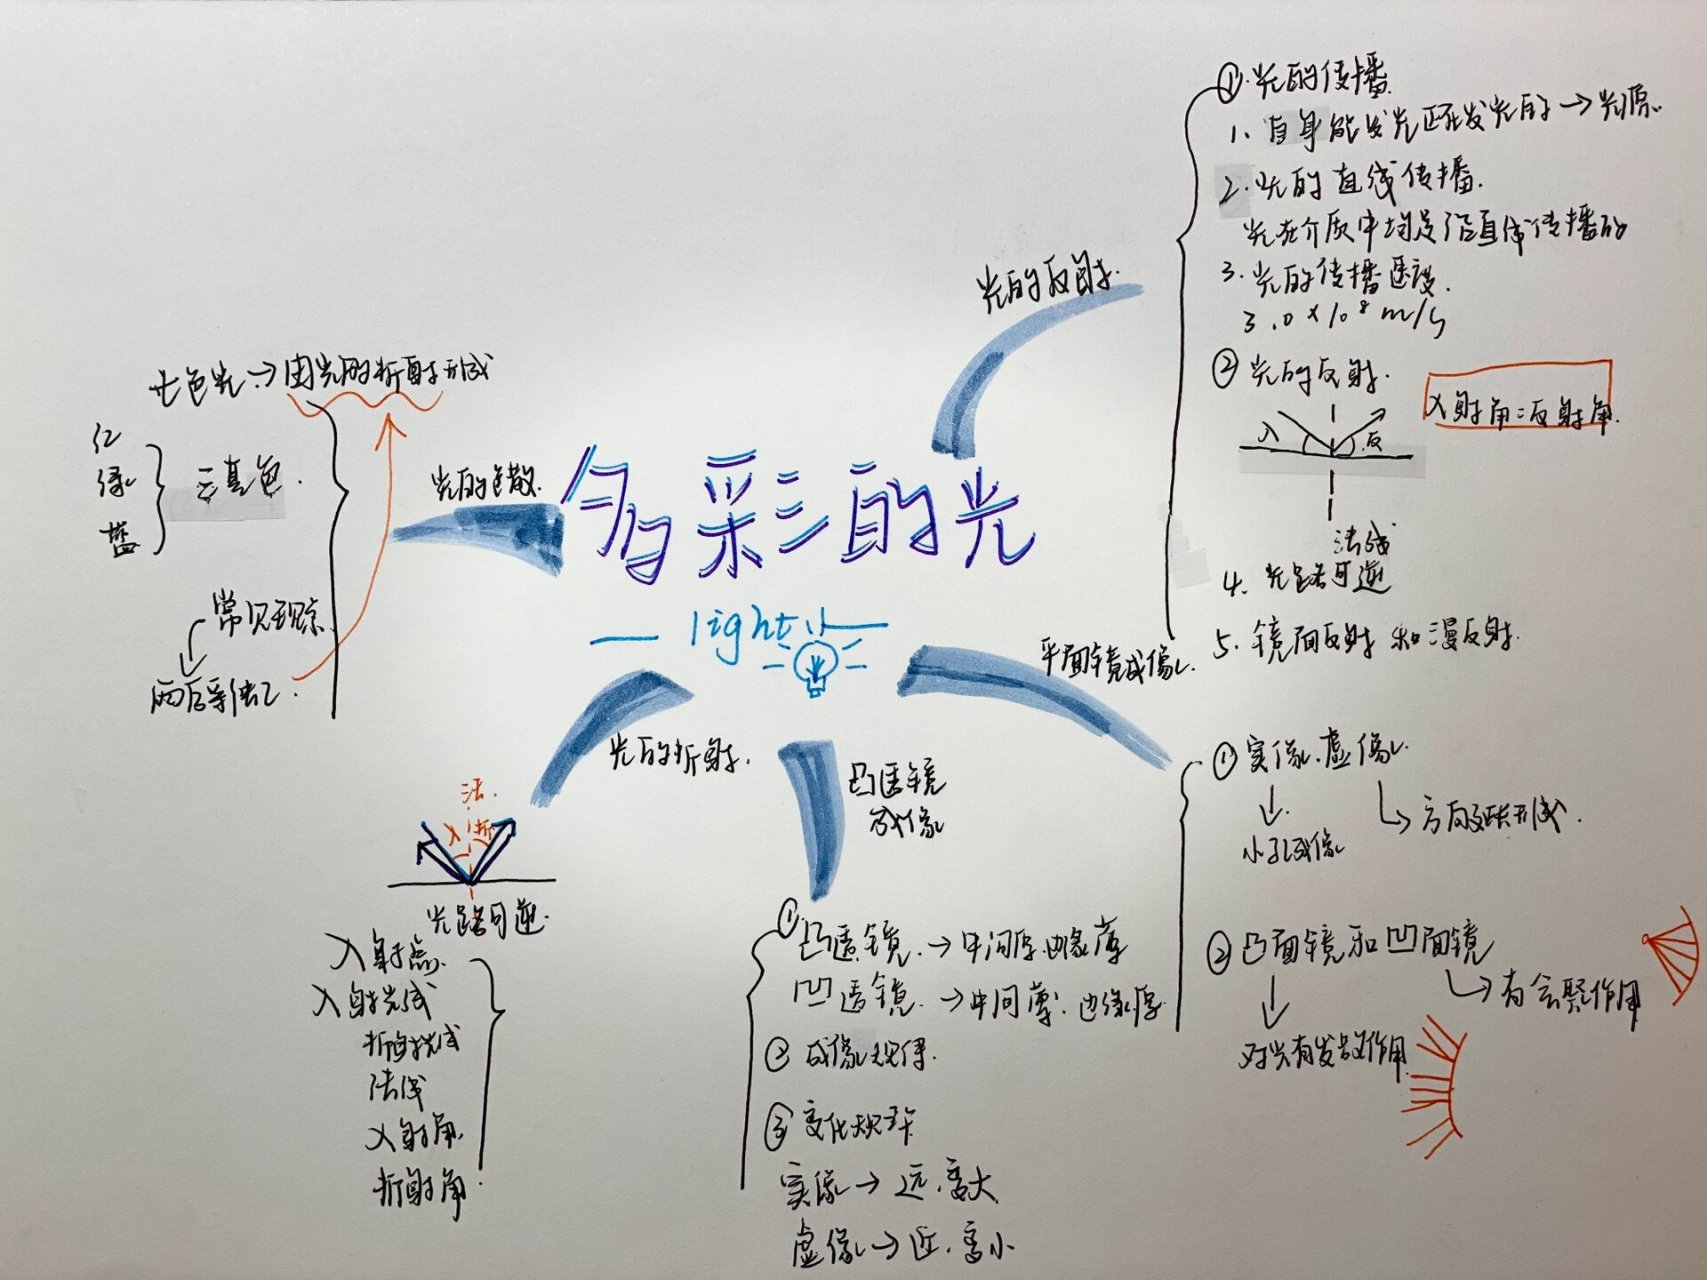 多彩的光
light
光的反射.
①.光的传播.
1、自身能发光正在发光的→光源.
2.光的直线传播.
光在介质中均是沿直线传播的
3.光的传播速度.
3.0×10⁸m/s
②光的反射.
入射角=反射角.
入
反
法线
4.光路可逆
5.镜面反射和漫反射.
平面镜成像.
①实像.虚像.
小孔成像
方向延长形成.
②凸面镜和凹面镜
有会聚作用
对光有发散作用
凸透镜
成像
①凸透镜.→中间厚.边缘薄
凹透镜.→中间薄.边缘厚.
②成像规律.
③变化规律
实像→远.变大
虚像→近.变小
光的折射.
法.
入
折
光路可逆.
入射点.
入射光线
折射光线
法线
入射角.
折射角.
光的色散.
七色光→由光的折射形成
红
绿
蓝
三基色.
常见现象
雨后彩虹.